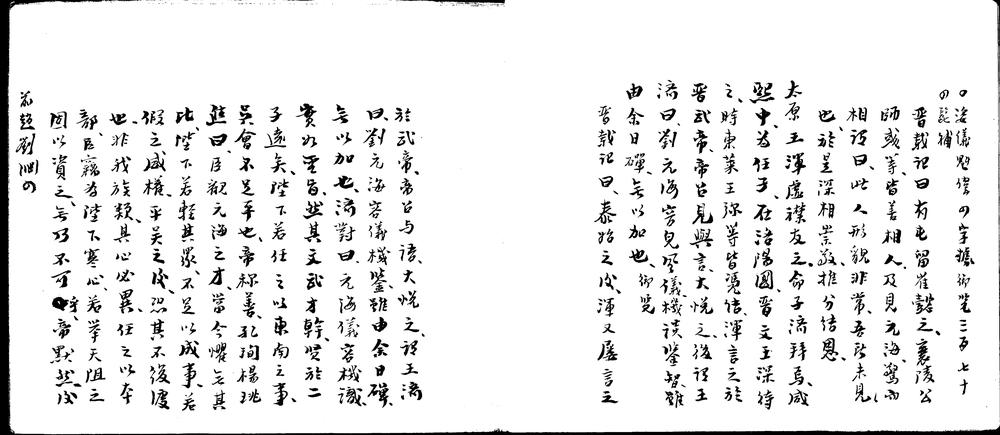 〇咨儀魁偉の字據御覽三百七十
の髭補
晉載記曰有屯留崔懿之襄陵公
師彧等皆善相人及見元海驚而
相謂曰此人形貌非常吾所未見
也於是深相崇敬推分結恩
太原王渾虛襟友之命子濟拜焉咸
熙中為任子在洛陽國晉文王深待
之時東萊王弥等皆憑結渾言之於
晉武帝帝召見與言大悅之後謂王
濟曰劉元海容皃風儀機談鑒智雖
由余日磾無以加也御覽
晉載記曰泰始之後渾又屢言之
於武帝帝召与語大悅之謂王濟
曰劉元海容儀機鑒雖由余日磾
無以加也濟對曰元海儀容機識
實如聖旨然其文武才幹賢於二
子遠矣陛下若任之以東南之事
吳會不足平也帝称善孔恂楊珧
進曰臣觀元海之才當今懼無其
比陛下若輕其眾不足以成事若
假之威權平吳之後恐其不復渡
也非我族類其心必異任之以本
部臣竊為陛下寒心若舉天阻之
固以資之無乃不可乎帝默然後
前趙劉淵の